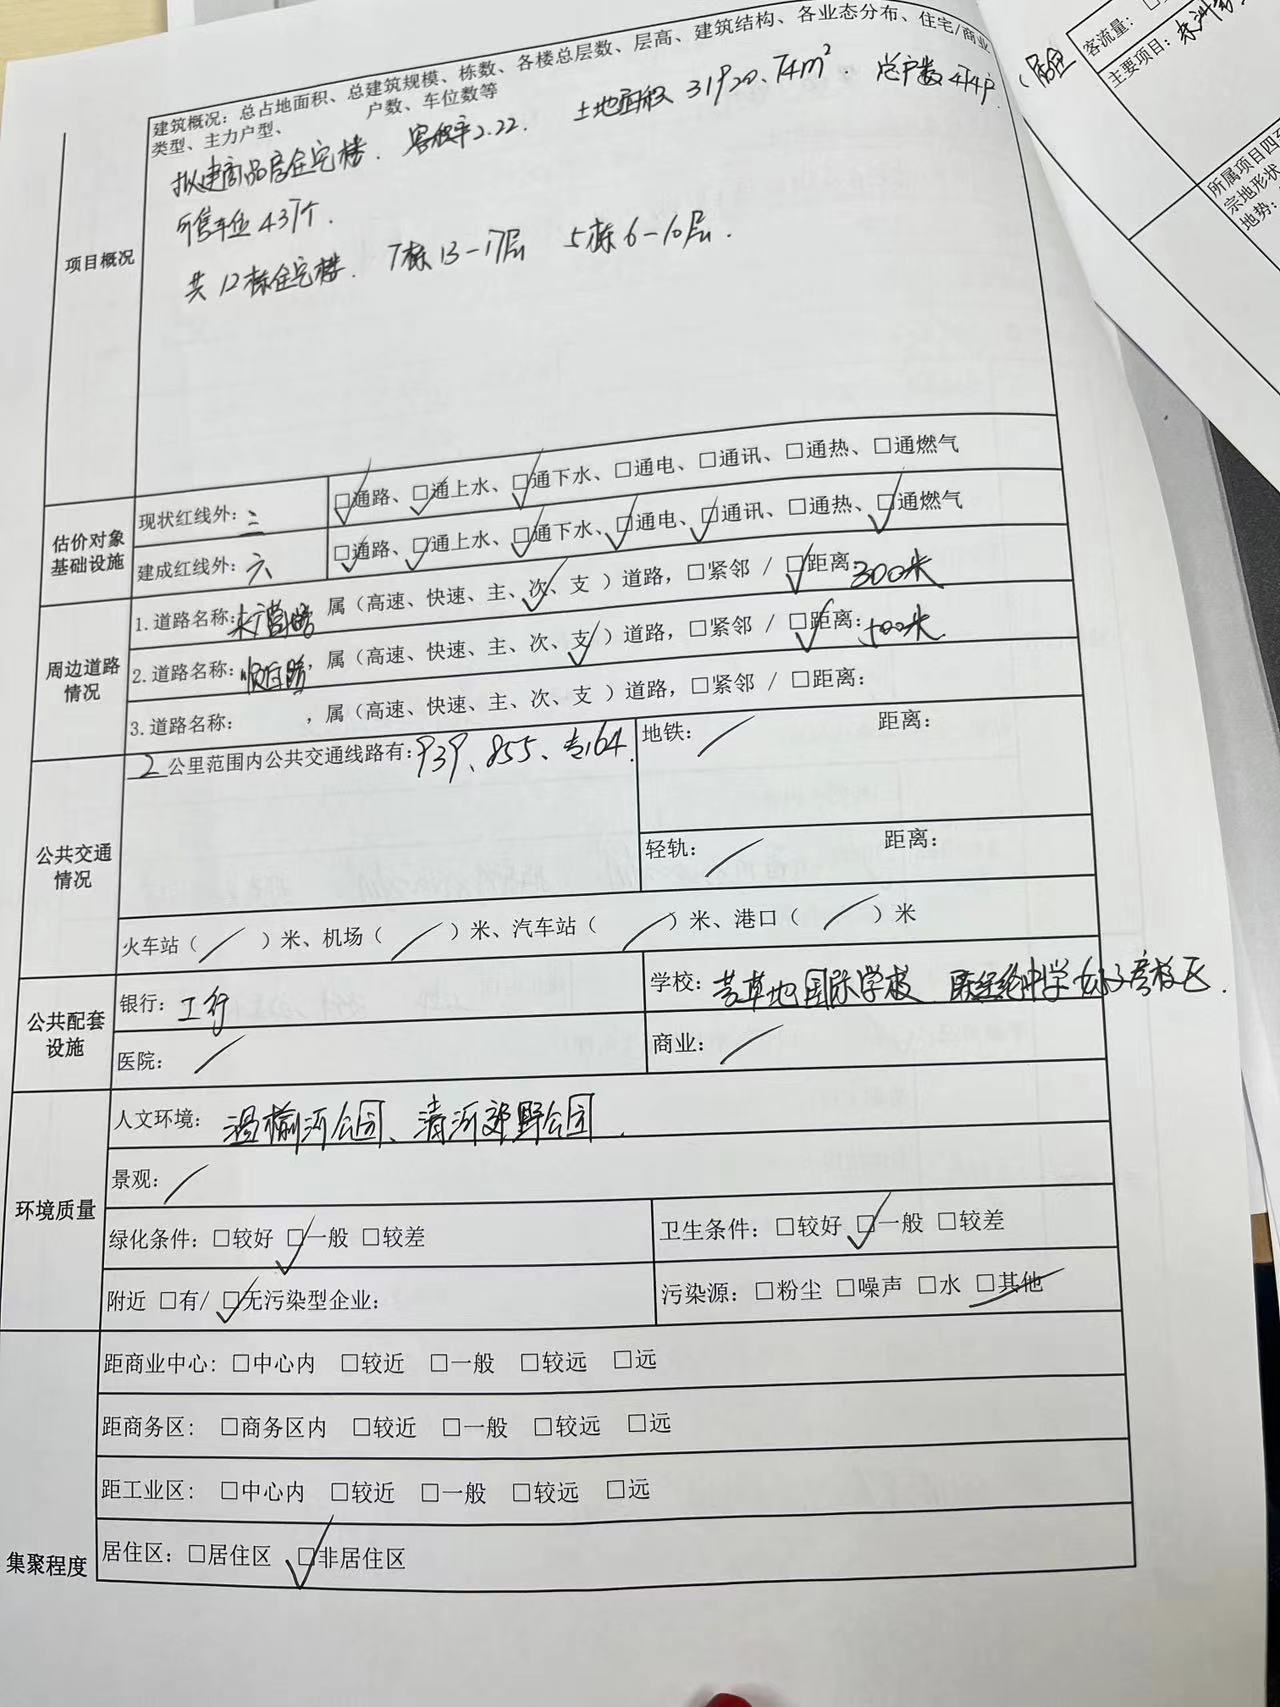 建筑概况：总占地面积、总建筑规模、栋数、各楼总层数、层高、建筑结构、各业态分布、住宅/商业
类型、主力户型、 户数、车位数等
拟建商品房住宅楼. 容积率2.22. 土地面积 31920.74m². 总户数474户.
可售车位437个.
共12栋住宅楼. 7栋13-17层 5栋6-10层.
项目概况
估价对象
基础设施
现状红线外：三
□通路、□通上水、□通下水、□通电、□通讯、□通热、□通燃气
建成红线外：六
□通路、□通上水、□通下水、□通电、□通讯、□通热、□通燃气
周边道路
情况
1.道路名称：来广营路，属（高速、快速、主、次、支）道路，□紧邻 / □距离：300米
2.道路名称：顺白路，属（高速、快速、主、次、支）道路，□紧邻 / □距离：500米
3.道路名称： ，属（高速、快速、主、次、支）道路，□紧邻 / □距离：
公共交通
情况
2公里范围内公共交通线路有：939、855、专164.
地铁：/ 距离：
轻轨：/ 距离：
火车站（/）米、机场（/）米、汽车站（/）米、港口（/）米
公共配套
设施
银行：工行
学校：芳草地国际学校 陈经纶中学 校区.
医院：/
商业：/
环境质量
人文环境：温榆河公园、清河郊野公园.
景观：/
绿化条件：□较好 □一般 □较差
卫生条件：□较好 □一般 □较差
附近 □有/ □无污染型企业：
污染源：□粉尘 □噪声 □水 □其他
集聚程度
距商业中心：□中心内 □较近 □一般 □较远 □远
距商务区： □商务区内 □较近 □一般 □较远 □远
距工业区： □中心内 □较近 □一般 □较远 □远
居住区：□居住区 □非居住区
客流量：□
主要项目：
所属项目四至
宗地形状
地势：